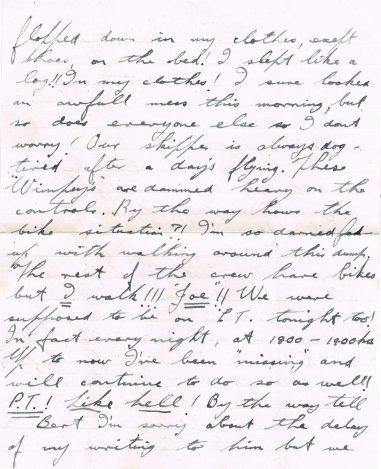 flopped down in my clothes, exept
shoes, on the bed! I slept like a
log!! In my clothes! I sure looked
an awfull mess this morning, but
so does everyone else so I dont
worry! Our skipper is always dog-
tired after a day's flying. These
"Wimpeys are dammed heavy on the
controls. By the way hows the
bike situation?! I'm so darned fed-
up with walking around this dump.
The rest of the crew have bikes
but I walk!!! "Joe"!! We were
supposed to be on "P.T. tonight too!
In fact every night, at 1800 - 1900 hrs
Up to now I've been "missing" and
will continue to do so as well!
P.T.! Like hell! By the way tell
Bert I'm sorry about the delay
of my writing to him but we